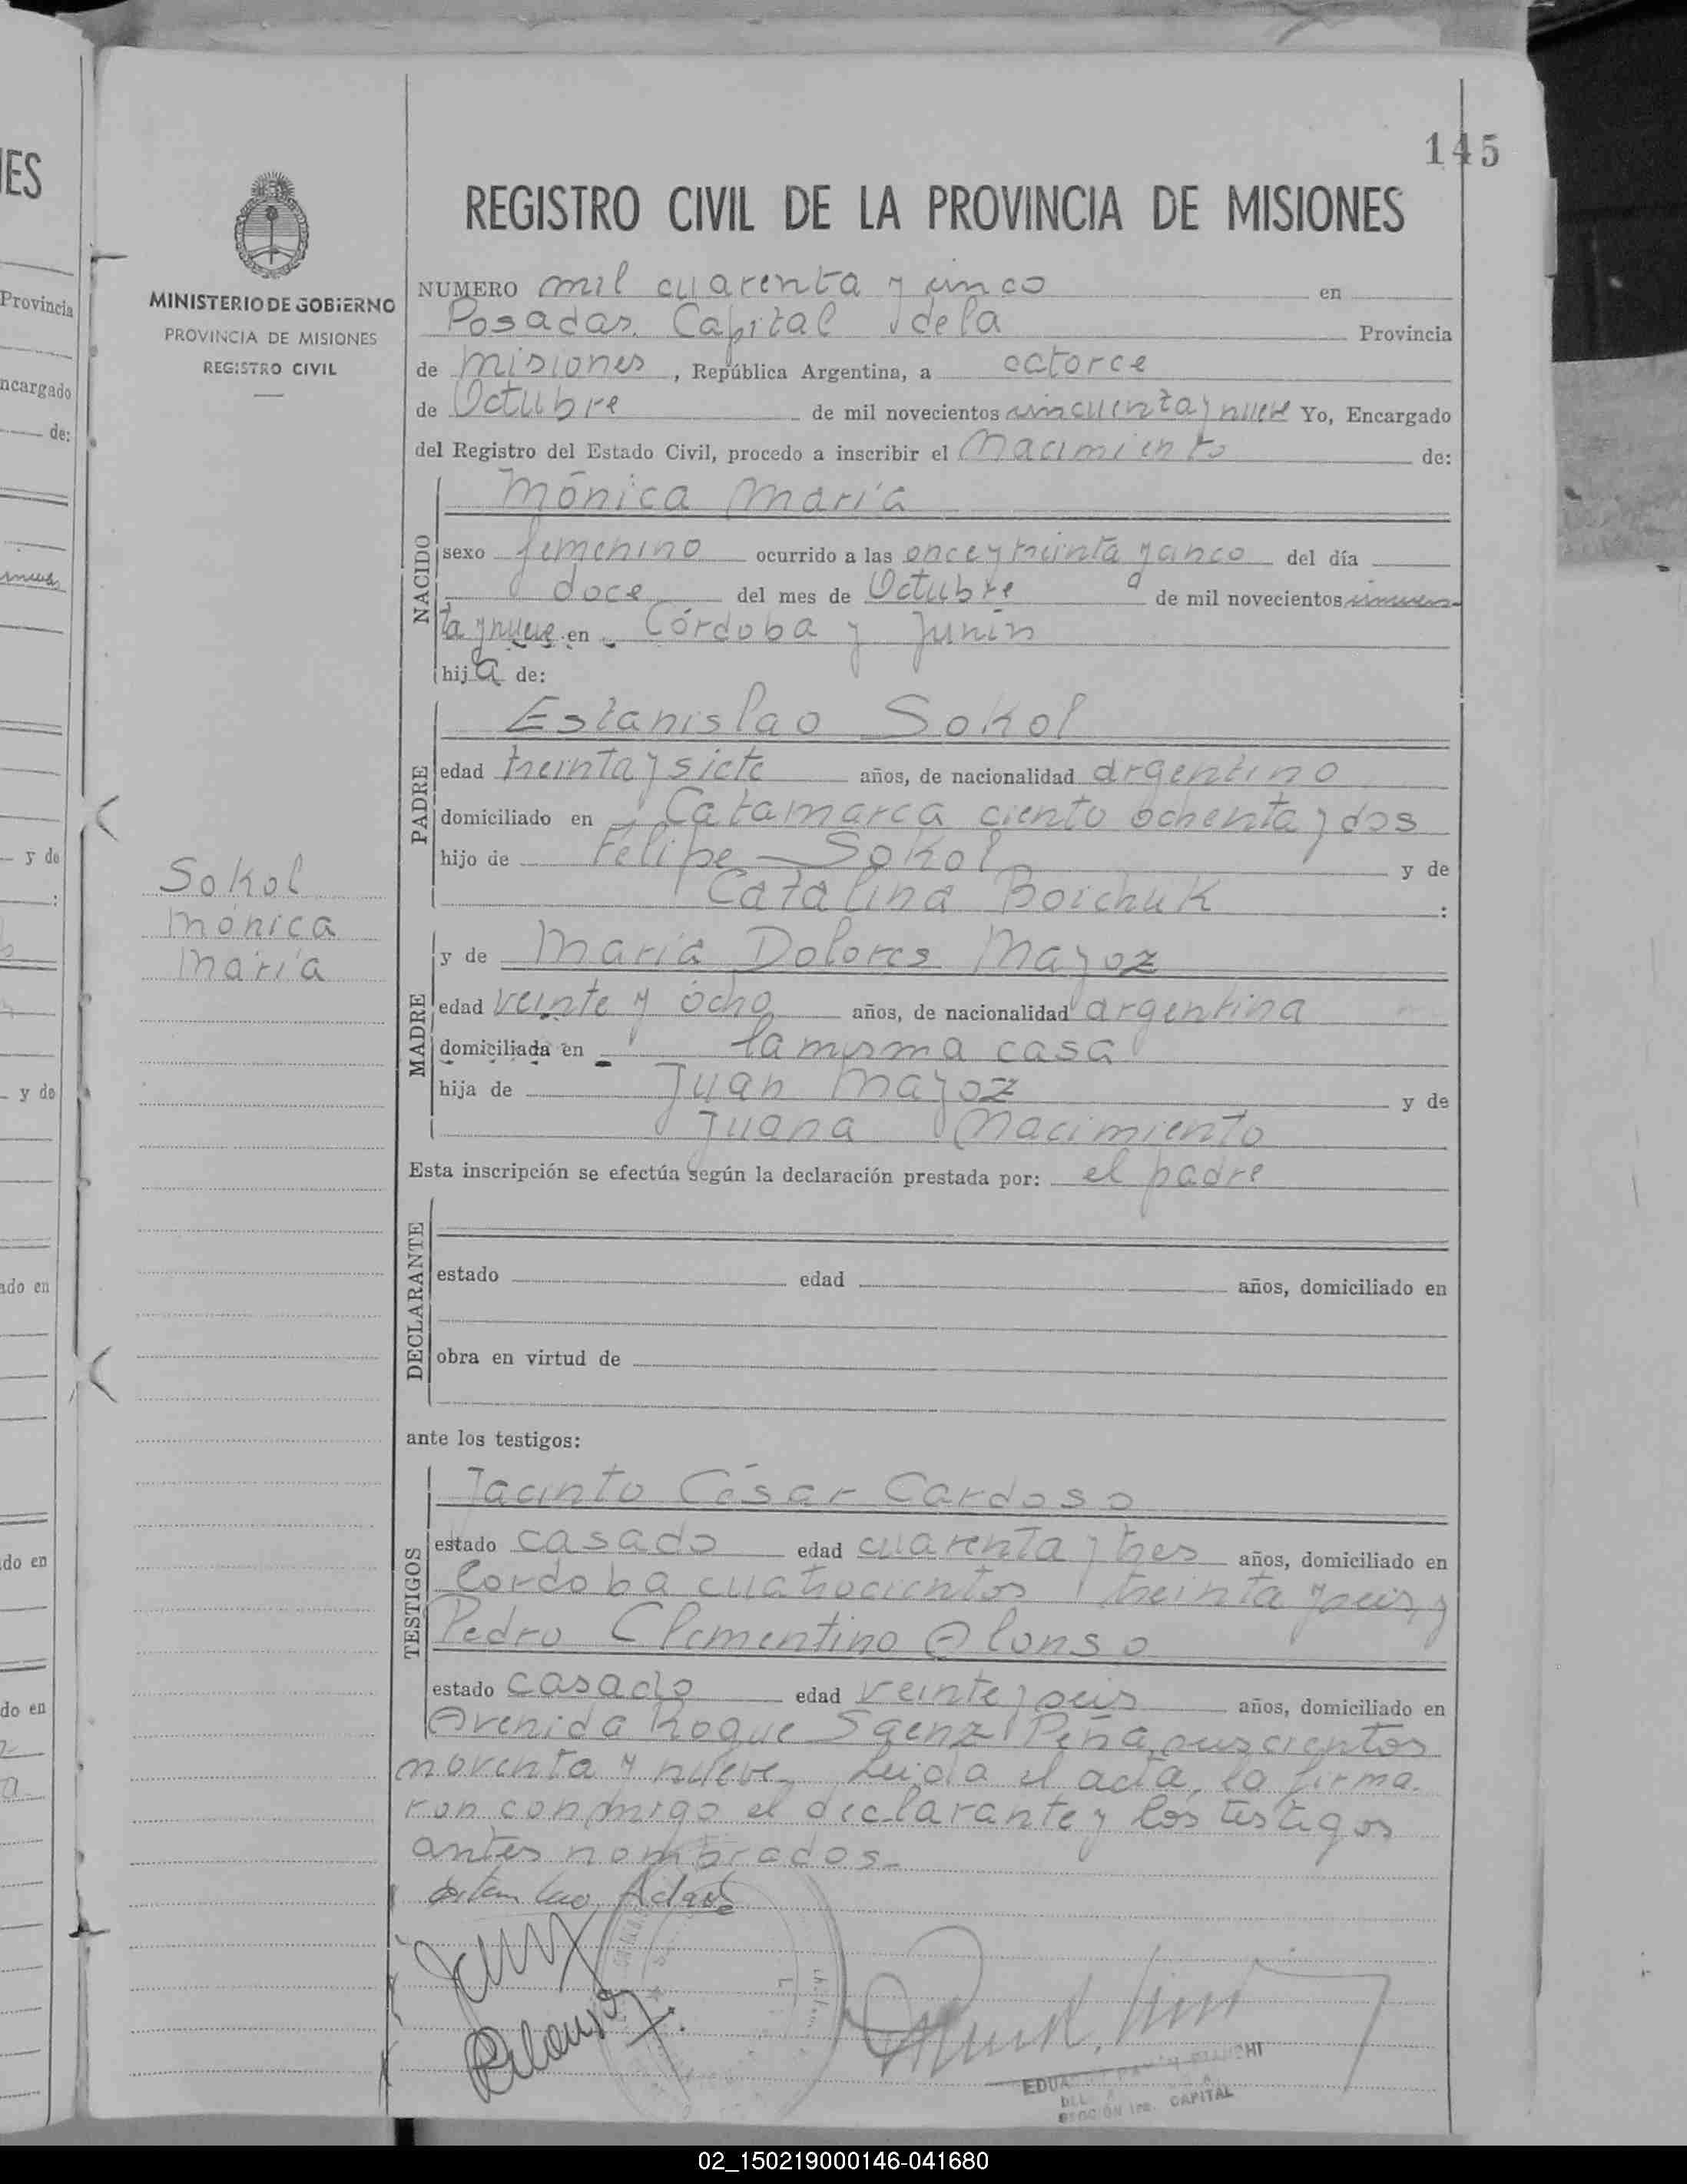 145
REGISTRO CIVIL DE LA PROVINCIA DE MISIONES
MINISTERIO DE GOBIERNO
PROVINCIA DE MISIONES
REGISTRO CIVIL
NUMERO mil cuarenta y cinco en
Posadas. Capital de la Provincia
de Misiones, República Argentina, a catorce
de Octubre de mil novecientos cincuenta y nueve Yo, Encargado
del Registro del Estado Civil, procedo a inscribir el Nacimiento de:
NACIDO
Mónica María
sexo femenino ocurrido a las once y treinta y cinco del día
doce del mes de Octubre de mil novecientos cincuen-
ta y nueve en Córdoba y Junín
hija de:
PADRE
Estanislao Sokol
edad treinta y siete años, de nacionalidad argentino
domiciliado en Catamarca ciento ochenta y dos
hijo de Felipe Sokol y de
Catalina Boichuk :
Sokol
Mónica
María
MADRE
y de María Dolores Mayoz
edad veinte y ocho años, de nacionalidad argentina
domiciliada en la misma casa
hija de Juan Mayoz y de
Juana Nacimiento
Esta inscripción se efectúa según la declaración prestada por: el padre
DECLARANTE
estado edad años, domiciliado en
obra en virtud de
ante los testigos:
TESTIGOS
Jacinto César Cardoso
estado casado edad cuarenta y tres años, domiciliado en
Cordoba cuatrocientos treinta y seis, y
Pedro Clementino Alonso
estado casado edad veinte y seis años, domiciliado en
Avenida Roque Saenz Peña seiscientos
noventa y nueve. Leida el acta, la firma.
ron conmigo el declarante y los testigos
antes nombrados.-
CAPITAL
ES
Provincia
ncargado
de:
y de
y de
ado en
do en
do en
02_150219000146-041680